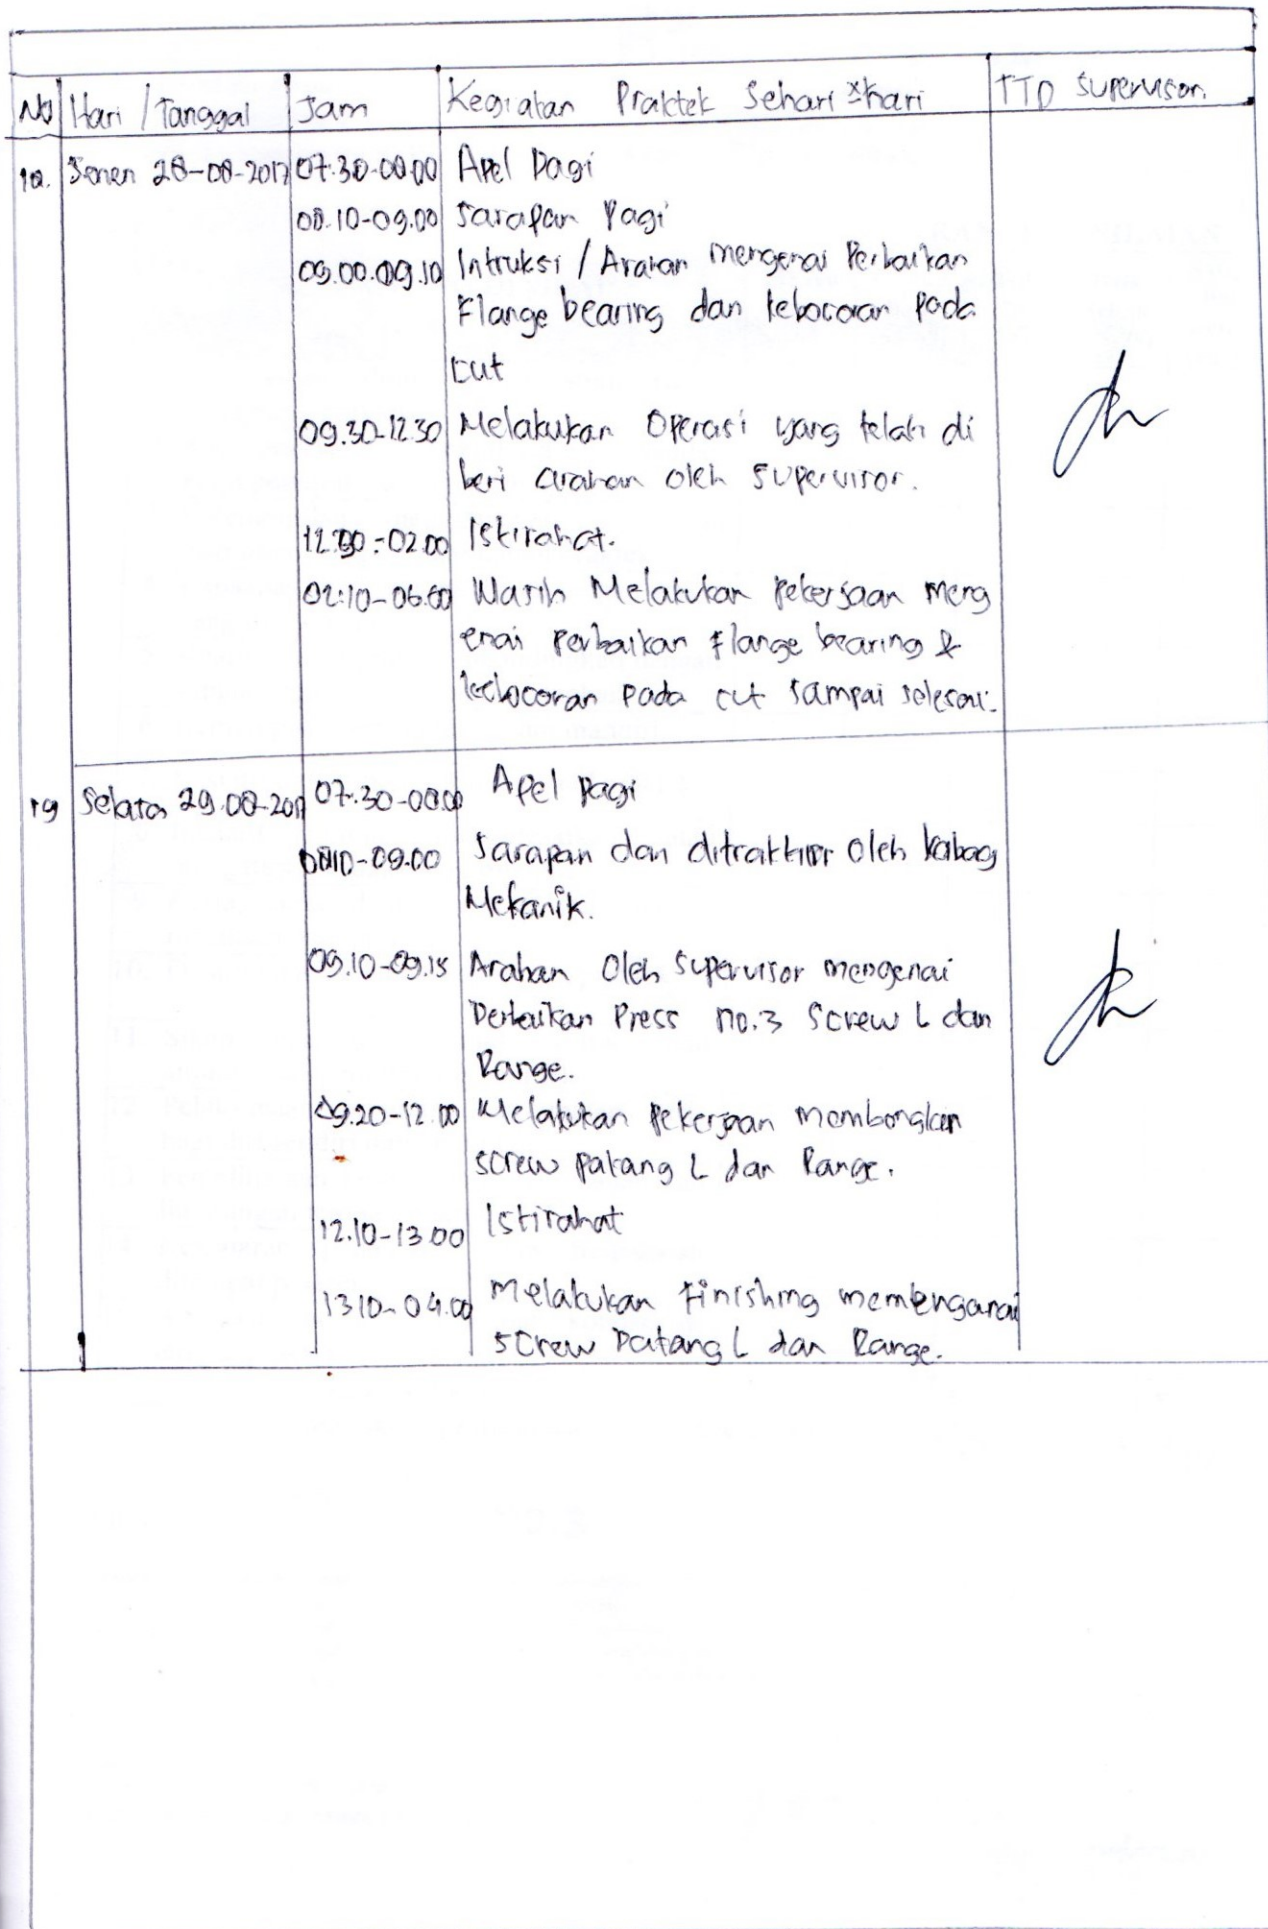 No Hari / Tanggal Jam Kegiatan Praktek Sehari x hari TTD Supervisor.
18. Senen 28-08-2017 07.30-08.00 Apel Pagi
08.10-09.00 Sarapan Pagi
09.00.09.10 Intruksi / Arahan mengenai Perbaikan
Flange bearing dan kebocoran pada
cut
09.30-12.30 Melakukan Operasi yang telah di
beri arahan oleh supervisor.
12.30-02.00 Istirahat.
02.10-06.00 Masih Melakukan pekerjaan meng
enai perbaikan flange bearing &
kebocoran pada cut sampai selesai.
19 Selasa 29.08-2017 07.30-08.00 Apel pagi
08.10-09.00 Sarapan dan ditraktir oleh kabag
Mekanik.
09.10-09.15 Arahan Oleh supervisor mengenai
Perbaikan Press no.3 Screw L dan
Range.
09.20-12.00 Melakukan pekerjaan membongkar
screw patang L dan Range.
12.10-13.00 Istirahat
13.10-04.00 Melakukan Finishing
screw patang L dan Range.